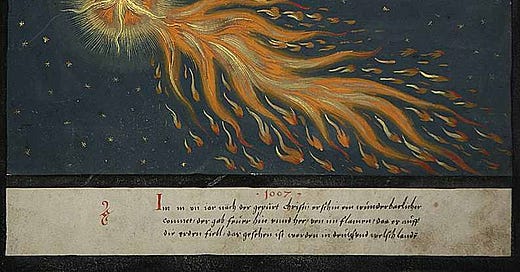 · 1007 ·
Im m vii iar nach der gepurt Christi erschin ein wunderbarlicher
comet der gab feuer hin vnnd her, von im flamen, das er auff
die erden fiell, das gesehen ist worden in welschlandt